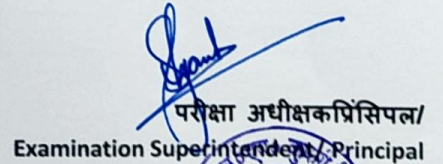 परीक्षा अधीक्षकप्रिंसिपल/
Examination Superintendent/ Principal